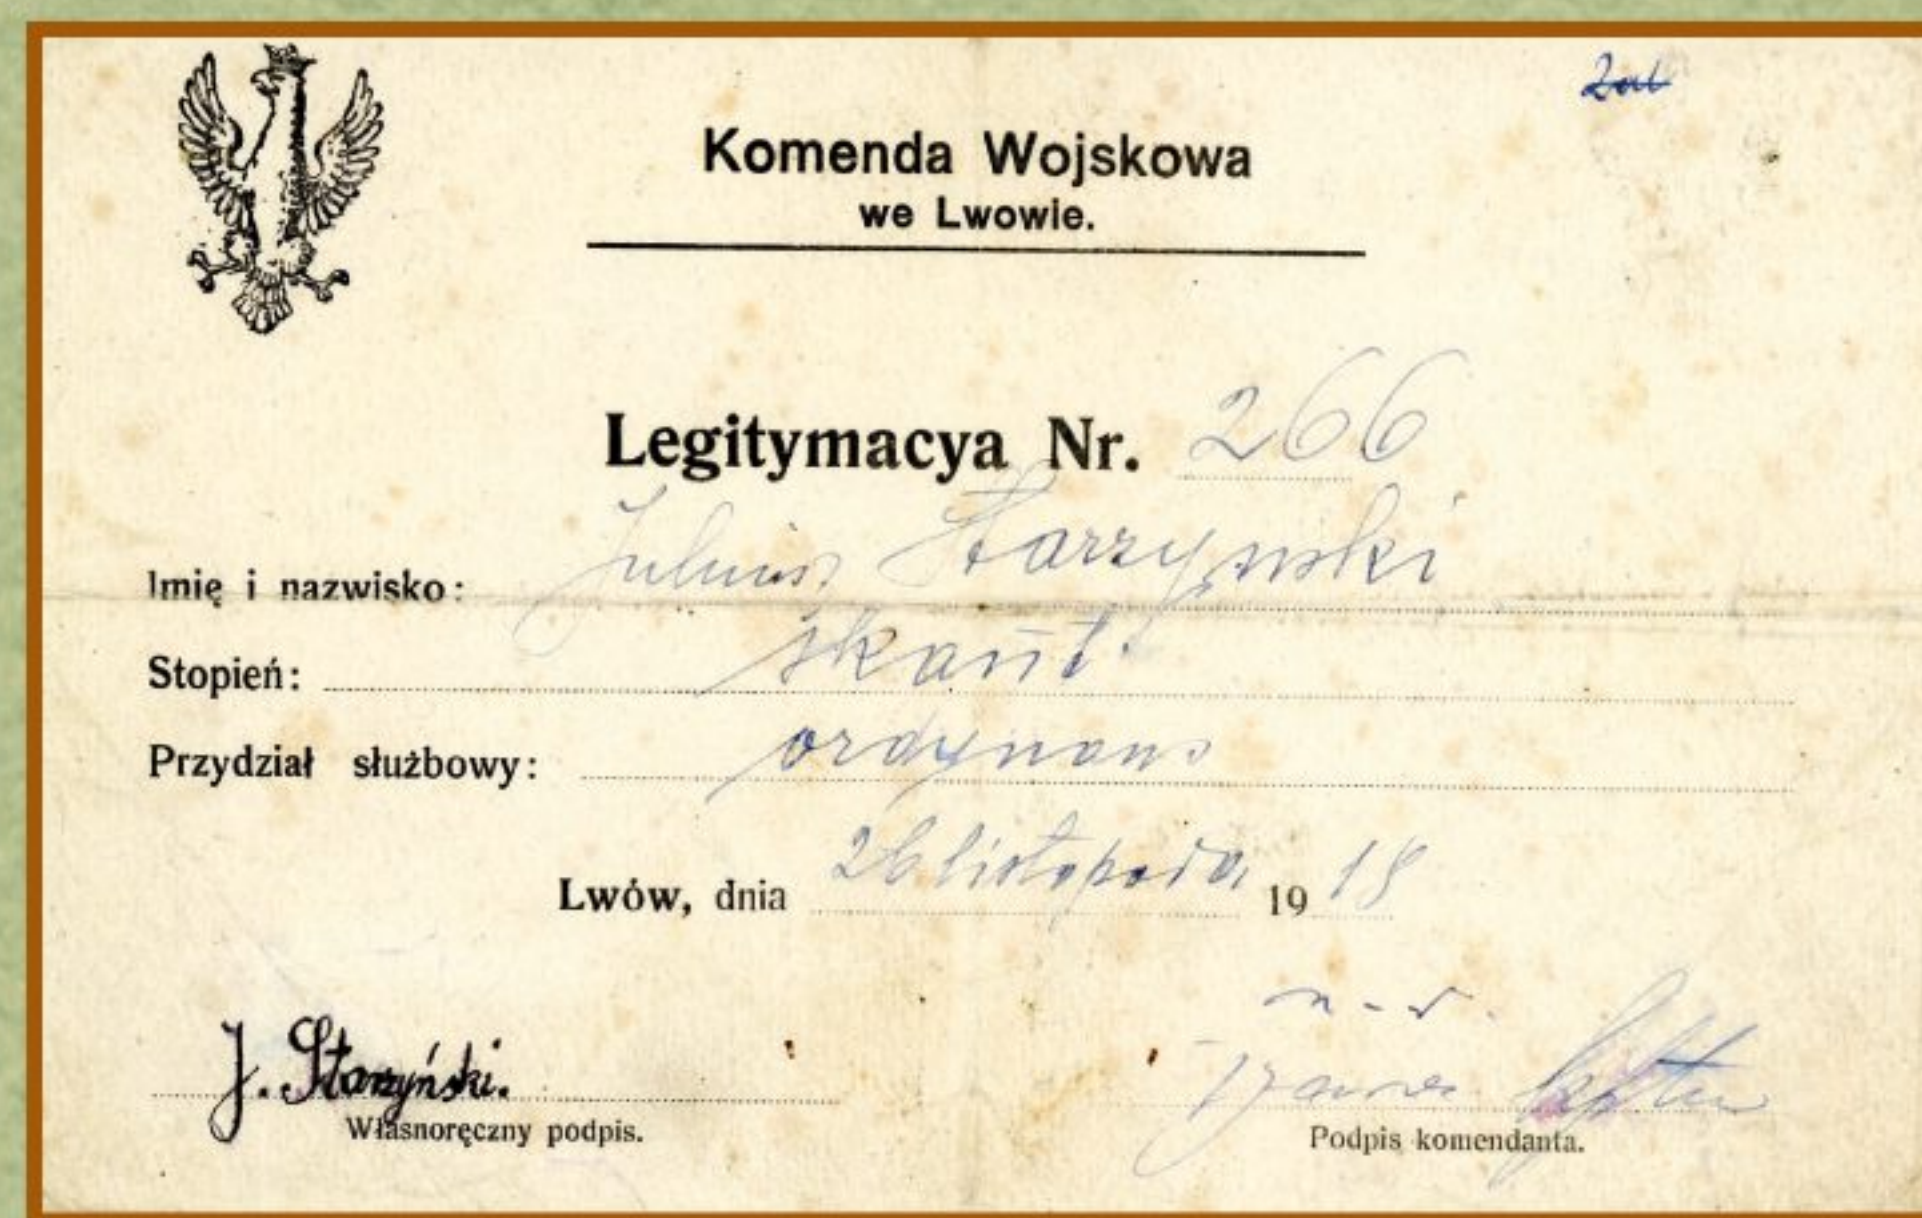 Komenda Wojskowa
we Lwowie.
Legitymacya Nr. 266
Imię i nazwisko: Juliusz Starzyński
Stopień: skaut
Przydział służbowy: ordynans
Lwów, dnia 26 listopada 1918
J. Starzyński.
Własnoręczny podpis.
Podpis komendanta.